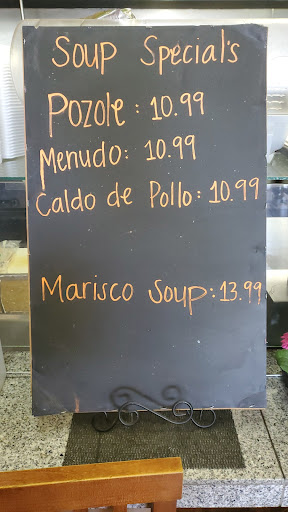 Soup Special's
Pozole: 10.99
Menudo: 10.99
Caldo de Pollo: 10.99
Marisco Soup: 13.99